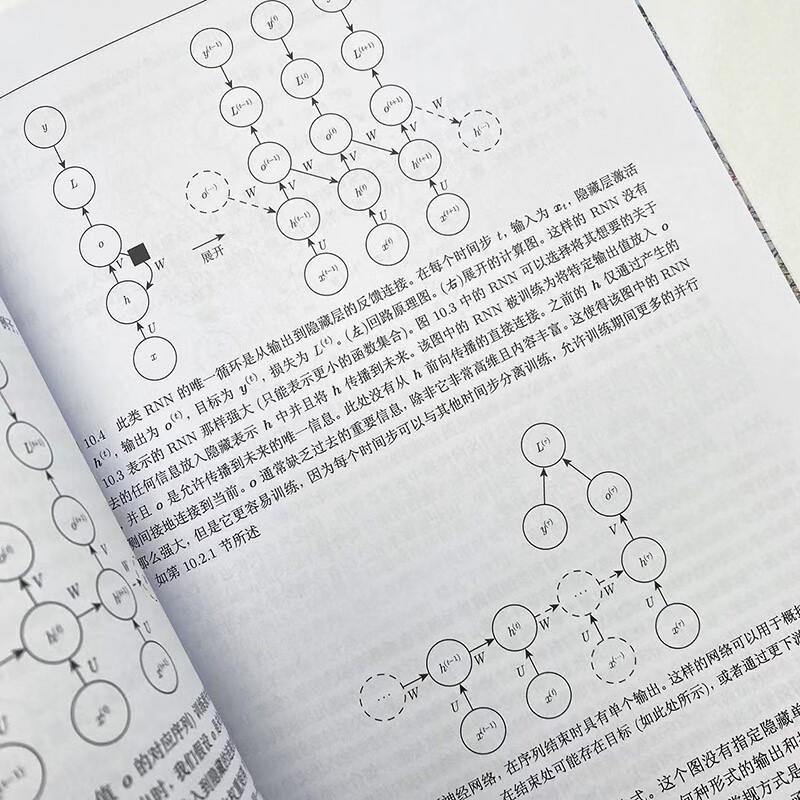 y
L
o
V
W
h
U
x
展开
y(t−1) y(t)
L(t−1) L(t) L(t+1)
o(…) o(t−1) o(t) o(t+1)
W W W W
V V V
h(t−1) h(t) h(t+1) h(…)
U U U
x(t−1) x(t) x(t+1)
10.4 此类 RNN 的唯一循环是从输出到隐藏层的反馈连接。在每个时间步 t,输入为 xt,隐藏层激活
h(t),输出为 o(t),目标为 y(t),损失为 L(t)。(左)回路原理图。(右)展开的计算图。这样的 RNN 没有
10.3 表示的 RNN 那样强大 (只能表示更小的函数集合)。图 10.3 中的 RNN 可以选择将其想要的关于
去的任何信息放入隐藏表示 h 中并且将 h 传播到未来。该图中的 RNN 被训练为将特定输出值放入 o
并且 o 是允许传播到未来的唯一信息。此处没有从 h 前向传播的直接连接。之前的 h 仅通过产生的
测间接地连接到当前。o 通常缺乏过去的重要信息,除非它非常高维且内容丰富。这使得该图中的 RNN
那么强大,但是它更容易训练,因为每个时间步可以与其他时间步分离训练,允许训练期间更多的并行
如第 10.2.1 节所述
L(τ)
y(τ) o(τ)
V
… h(t−1) h(t) … h(τ)
W W W W
U U U U
x(t−1) x(t) x(…) x(τ)
神经网络,在序列结束时具有单个输出。这样的网络可以用于概括
在结束处可能存在目标 (如此处所示),或者通过更下游
式。这个图没有指定隐藏单
何种形式的输出和
常规方式是